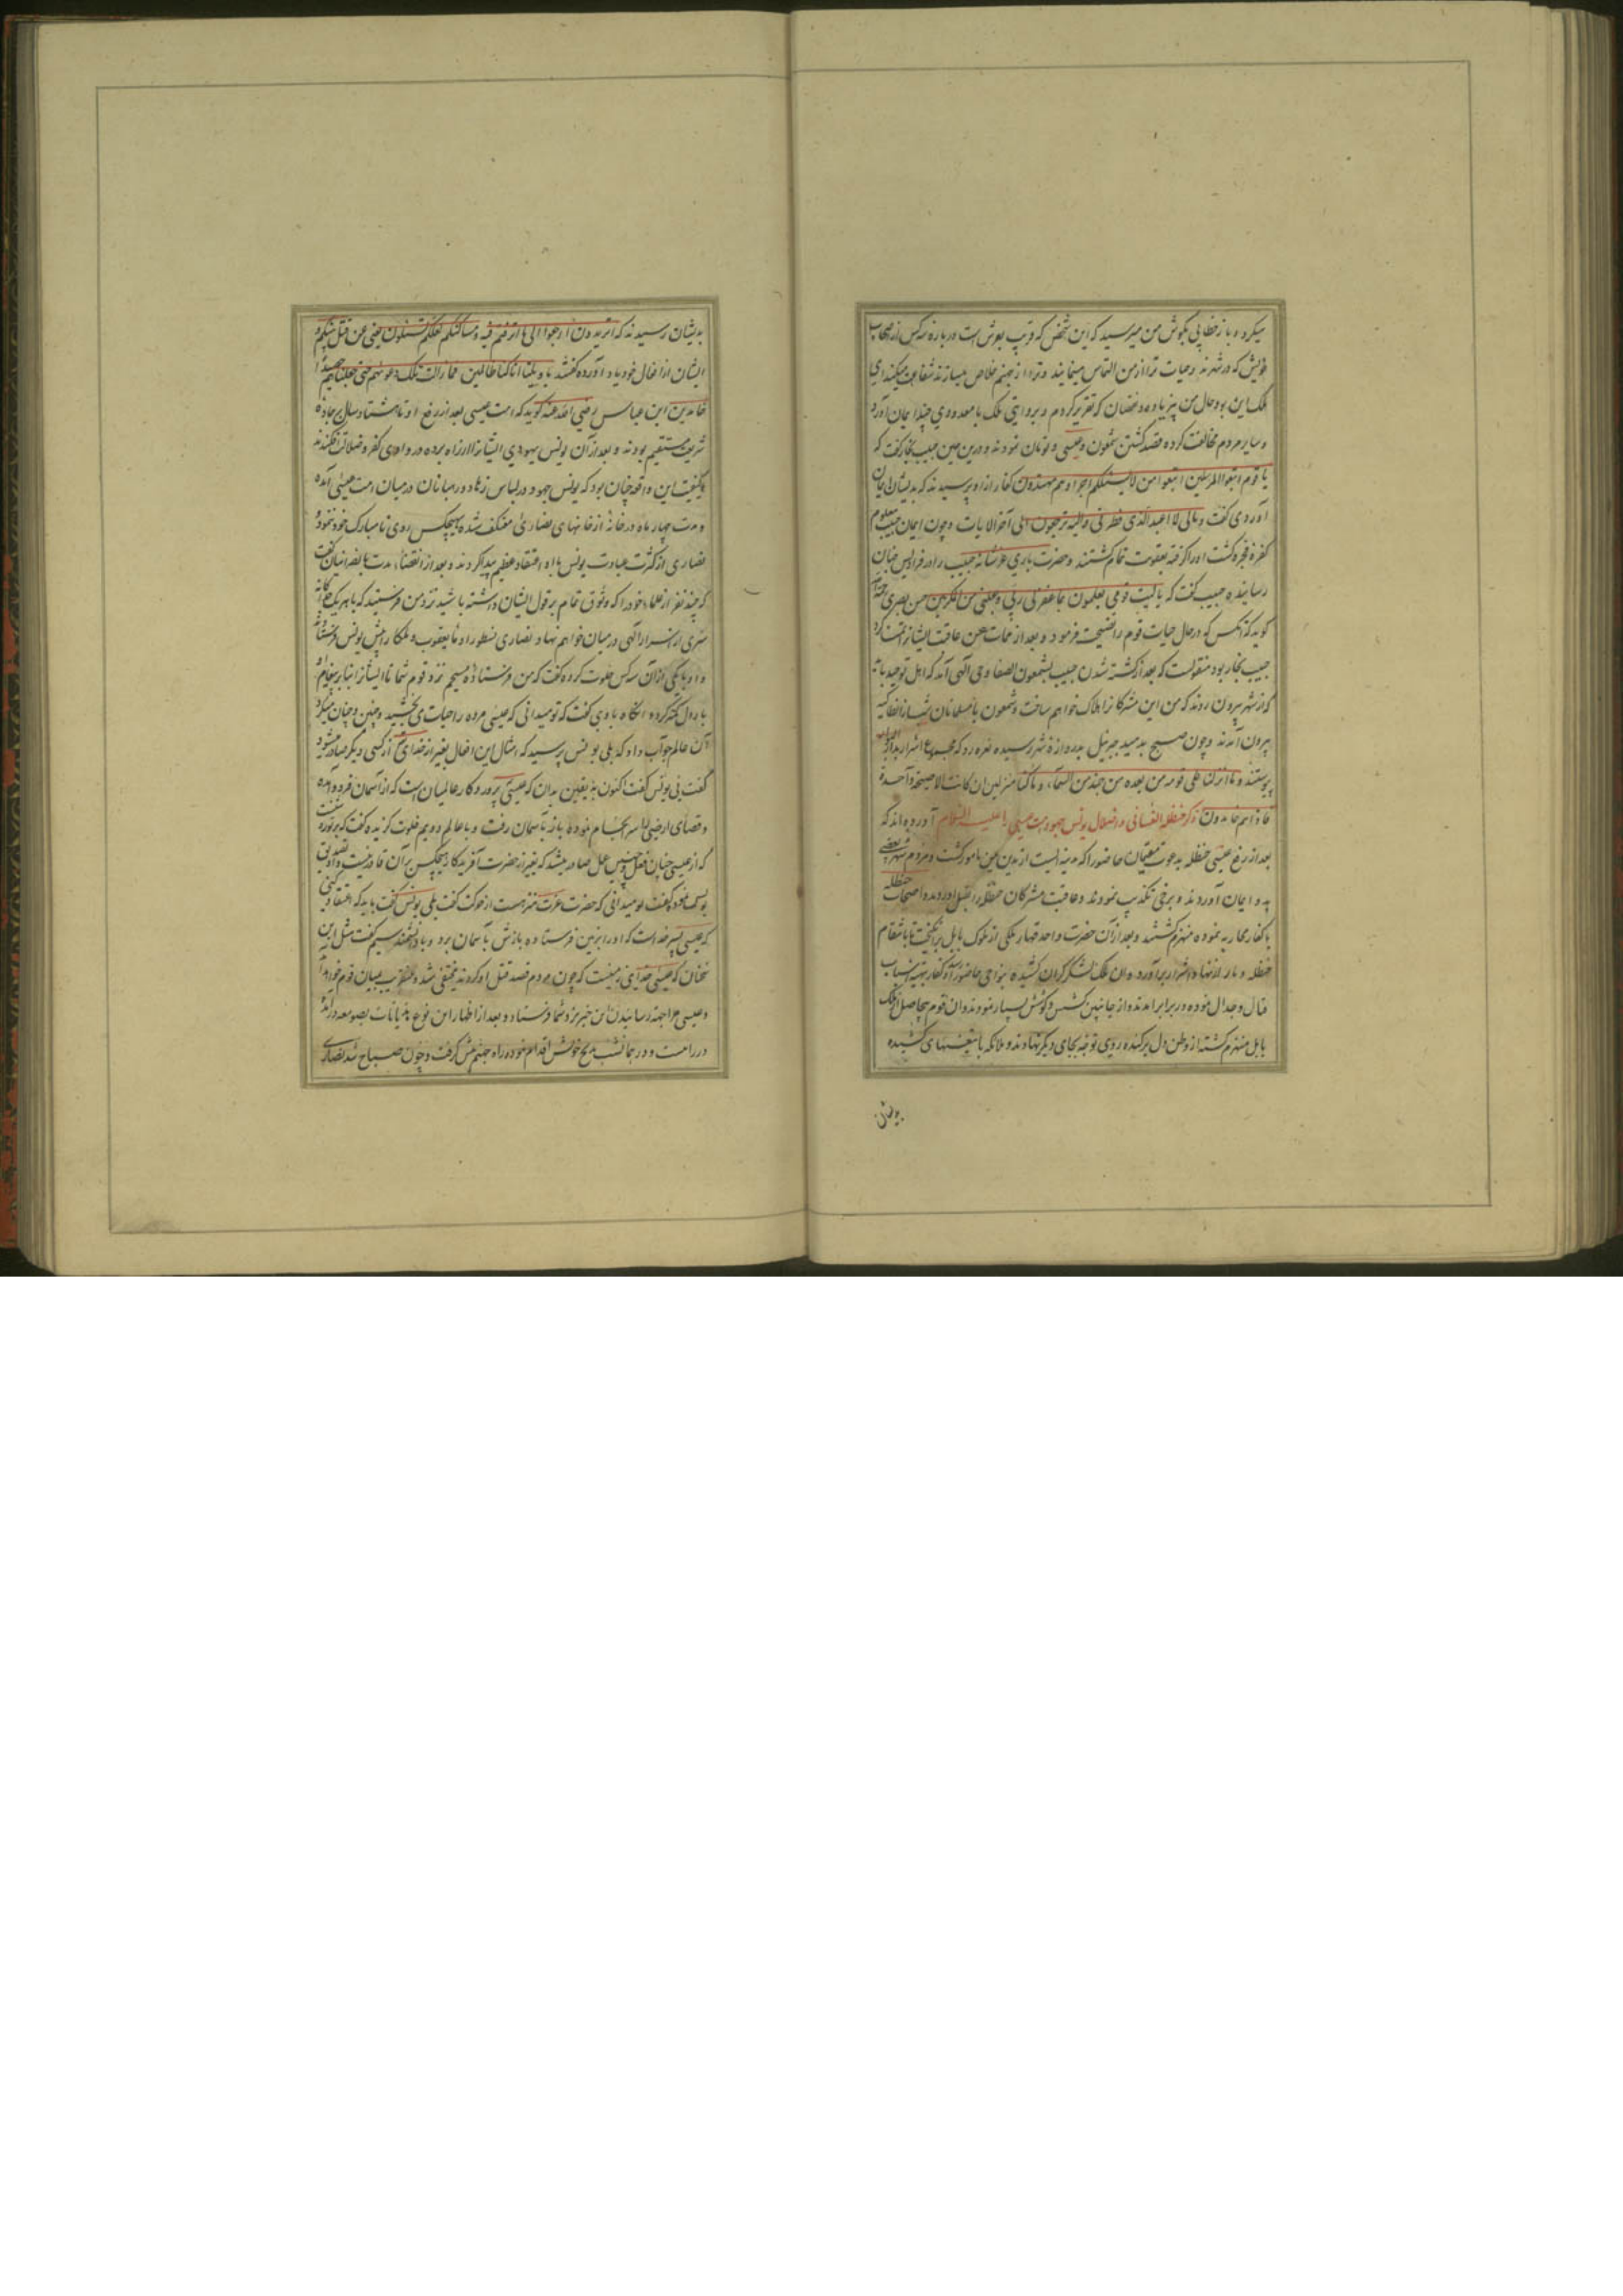 میکرد و باز خطابی بگوش من میرسید که این شخص که قریب بعرش است درباره سه کس از اصحاب
خویش که در شهرند وحیات ترا از من التماس مینمایند وترا از جهنم خلاص میسازند شفاعت میکند ای
ملک این بود حال من پیر یاده ونقصان که تقریر کردم و بروایتی ملک با معدودی چند ایمان آورد
و سایر مردم مخالفت کرده قصد کشتن شمعون و عیسی و تومان نمودند و درین حین حبیب نجار گفت که
یا قوم اتبعوا المرسلین اتبعوا من لا یسئلکم اجرا و هم مهتدون کفار از او پرسیدند که بدیشان ایمان
آوردی گفت ومالی لا اعبد الذی فطرنی و الیه ترجعون الی آخر الایات وچون ایمان حبیب معلوم
کفره فجره گشت او را گرفته بعقوبت تمام کشتند وحضرت باری عز شانه حبیب را در فرادیس جنان
رسانیده حبیب گفت که یا لیت قومی یعلمون بما غفر لی ربی وجعلنی من المکرمین حسن بصری
گوید که آنکس که در حال حیات قوم را نصیحت فرموده و بعد از ممات حسن عاقبت ایشانرا تمنا کرد
حبیب نجار بود منقولست که بعد از کشته شدن حبیب بشمعون الصفا وحی الهی آمد که اهل توحید باید
که از شهر بیرون روند که من این مشرکانرا هلاک خواهم ساخت وشمعون با مسلمانان شب از انطاکیه
بیرون آمدند وچون صبح بدمید جبرئیل بدروازه شهر رسیده نعره زد که مجموع اشرار بدار البوار
پیوستند وما انزلنا علی قومه من بعده من جند من السماء وما کنا منزلین ان کانت الا صیحة واحدة
فاذا هم خامدون ذکر حنظله الغسانی و افتعال یونس جهود امت عیسی را علیه السلام آورده اند که
بعد از رفع عیسی حنظله بدعوت مقیمان حاضورا که مدینه ایست از یمن مامور گشت و مردم شهر بعضی
بدو ایمان آوردند و برخی تکذیب نمودند وعاقبت مشرکان حنظله را بقتل آوردند و اصحاب حنظله
با کفار محاربه نموده منهزم گشتند و بعد از آن حضرت واحد قهار ملکی از ملوک بابل برانگیخت تا با انتقام
حنظله دمار از نهاد اشرار برآورد و آن ملک لشکر گران کشیده بنواحی حاضورا آمد و کفار بتهیه اسباب
قتال وجدال نموده در برابر آمدند و از جانبین کشش و کوشش بسیار نمودند و آن قوم بیحاصل از ملک
بابل منهزم گشته از وطن دل برکنده روی توجه بجای دیگر نهادند و ملائکه با تیغهای کشیده
بدیشان
بدیشان رسیدند که اتریدون ارجعوا الی ما اترفتم فیه ومساکنکم لعلکم تسئلون یعنی عن قتل نبیکم و
ایشان از افعال خود یاد آورده گفتند یا ویلنا انا کنا ظالمین فما زالت تلک دعوٰیهم حتی جعلناهم حصیدا
خامدین ابن عباس رضی الله عنه گوید که امت عیسی بعد از رفع او تا هشتاد سال بر جاده
شریعت مستقیم بودند و بعد از آن یونس یهودی ایشانرا از راه برده در وادی کفر و ضلالت افکند
وکیفیت این واقعه چنان بود که یونس جهود در لباس زهاد و رهبانان در میان امت عیسی آمده
و مدت چهار ماه در خانه از خانهای نصاری معتکف شده بهیچکس روی نامبارک خود ننمود
نصاری از کثرت عبادت یونس باو اعتقاد عظیم پیدا کردند و بعد از انقضاء مدت بنصرانیان گفت
که چند نفر از علماء خود را که وثوق تمام بر قول ایشان داشته باشید نزد من فرستید که با هر یک جداگانه
سری از اسرار الهی در میان خواهم نهاد نصاری نسطورا و مار یعقوب و ملکا را پیش یونس فرستادند
و او با یکی از آن سه کس خلوت کرده گفت که من فرستاده مسیحم نزد قوم شما تا ایشانرا
آنگاه با وی گفت که تو میدانی که عیسی مرده را حیات می بخشید و چنین وچنان میکرد
آن عالم جواب داد که بلی یونس پرسید که امثال این افعال بغیر از خدای از کسی دیگر صادر میشود
گفت نی یونس گفت اکنون به یقین بدان که عیسی پروردگار عالمیان است که از آسمان فرود آمده
وقضای ارضی را سر انجام نموده باز بآسمان رفت و با عالم دویم خلوت گزیده گفت
که از عیسی چنان فعل و چنین عمل صادر میشد که بغیر از حضرت آفریدگار هیچکس بر آن قادر نیست
گفت تو میدانی که حضرت عزت منزه است از حرکت گفت بلی یونس گفت باید که اعتقاد کنی
که عیسی پسر خداست که او را بزمین فرستاده بازش بآسمان برد و با دانشمند سیم گفت مثل این
سخنان که عیسی خدای زمینست که چون مردم قصد قتل او کردند مختفی شد و عنقریب بمیان قوم خواهد آمد
و عیسی مرا جهة رسانیدن این خبر نزد شما فرستاد و بعد از اظهار این نوع هذیانات بصومعه
درآمد و در همان شب بذبح خویش اقدام نموده راه جهنم پیش گرفت وچون صباح شد نصاری